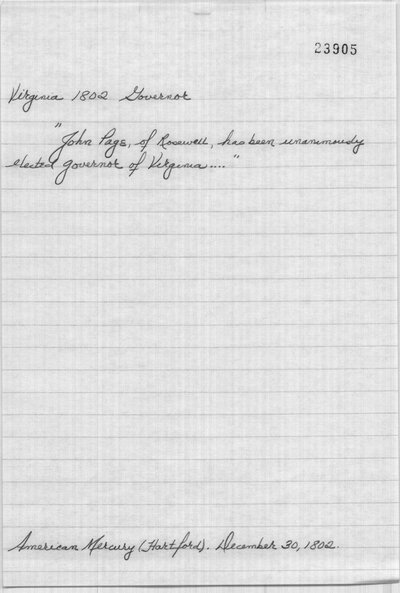 23905
Virginia 1802 Governor
"John Page, of Rosewell, has been unanimously
elected governor of Virginia...."
American Mercury (Hartford). December 30, 1802.